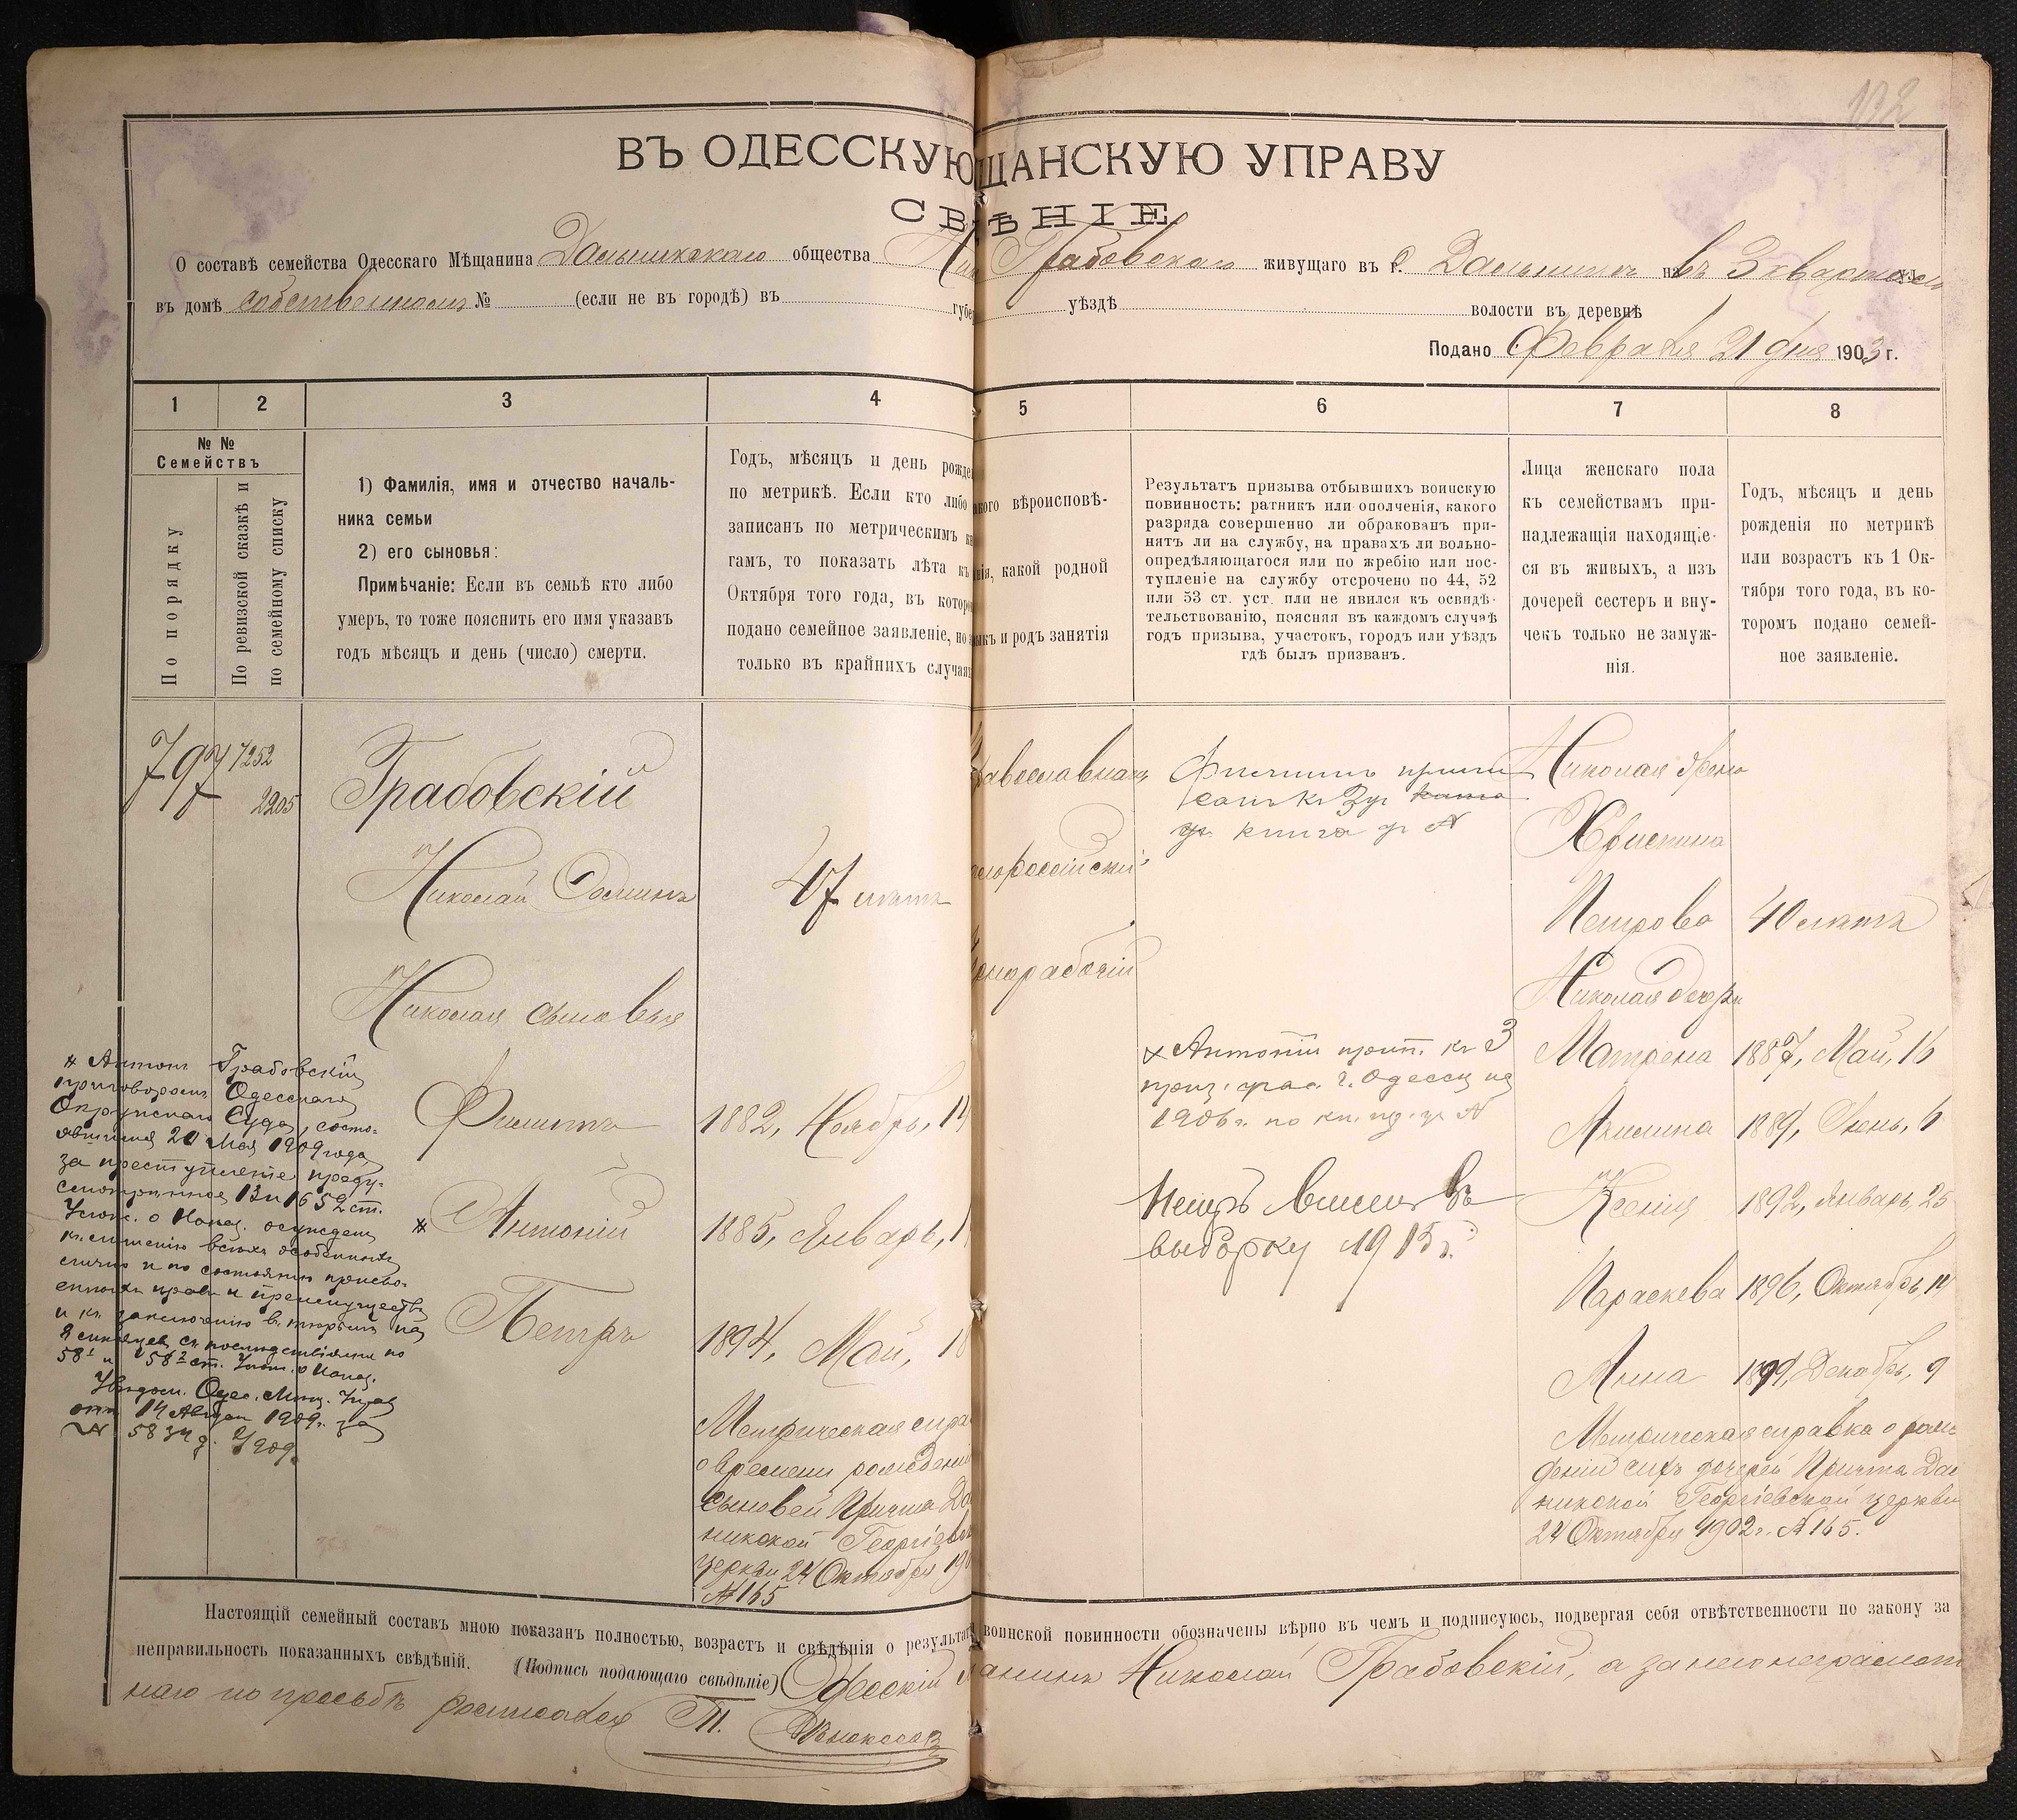 ВЪ ОДЕССКУЮ ЩАНСКУЮ УПРАВУ
СВѢНІЕ
О составѣ семейства Одесскаго Мѣщанина Дальникскаго общества Ник Грабовскаго живущаго въ с. Дальникъ въ 3 кварталѣ
въ домѣ собственномъ № (если не въ городѣ) въ губе уѣздѣ волости въ деревнѣ
Подано Февраля 21 дня 1903 г.
1 2 3 4 5 6 7 8
№ №
Семействъ
По порядку
По ревизской сказкѣ и
по семейному списку
1) Фамилія, имя и отчество началь-
ника семьи
2) его сыновья:
Примѣчаніе: Если въ семьѣ кто либо
умеръ, то тоже пояснить его имя указавъ
годъ мѣсяцъ и день (число) смерти.
Годъ, мѣсяцъ и день рожде
по метрикѣ. Если кто либо
записанъ по метрическимъ к
гамъ, то показать лѣта къ
Октября того года, въ котор
подано семейное заявленіе, но
только въ крайнихъ случая
кого вѣроисповѣ-
нія, какой родной
ыкъ и родъ занятія
Результатъ призыва отбывшихъ воинскую
повинность: ратникъ или ополченія, какого
разряда совершенно ли обракованъ при-
нятъ ли на службу, на правахъ ли вольно-
опредѣляющагося или по жребію или пос-
тупленіе на службу отсрочено по 44, 52
или 53 ст. уст. или не явился къ освидѣ-
тельствованію, поясняя въ каждомъ случаѣ
годъ призыва, участокъ, городъ или уѣздъ
гдѣ былъ призванъ.
Лица женскаго пола
къ семействамъ при-
надлежащія находящіе-
ся въ живыхъ, а изъ
дочерей сестеръ и вну-
чекъ только не замуж-
нія.
Годъ, мѣсяцъ и день
рожденія по метрикѣ
или возрастъ къ 1 Ок-
тября того года, въ ко-
торомъ подано семей-
ное заявленіе.
797
1252
2205
Грабовскій
Николай Соминъ
47 лѣтъ
Николая сыновья
Филиппъ 1882, Ноябрь, 14
* Антоній 1885, Январь, 1
Петръ 1894, Май, 18
Метрическая спра
о времени рожденія
сыновей Причта Да
никской Георгіевск
церкви 24 Октября 190
№ 165
* Антонъ Грабовскій
приговоромъ Одесскаго
Окружнаго Суда, состо-
явшимся 20 Мая 1909 года
за преступленіе преду-
смотрѣнное 13 и 1652 ст.
Улож. о Наказ. осужденъ
къ лишенію всѣхъ особенныхъ
лично и по состоянію присво-
енныхъ правъ и преимуществъ
и къ заключенію въ тюрьмѣ на
8 мѣсяцевъ съ послѣдствіями по
58¹ и 58² ст. Улож. о Наказ.
Увѣдом. Одес. Мѣщ. Управ
отъ 14 Август 1909 г. за
№ 5834 1909.
равославнаго
лороссійскій
чернорабочій
Филиппъ припи
санъ къ 3 уч
книга уч №
х Антоній прип. къ 3
приз. учас. г. Одессы на
1906 г. по кн. пр. уч №
Петръ внесенъ въ
выборку 1915 г.
Николая жена
Христина
Петрова 40 лѣтъ
Николая дочери
Матрена 1887, Май, 16
Акилина 1889, Іюнь, 6
Ксенія 1892, Январь, 25
Параскева 1896, Октябрь, 14
Анна 1899, Декабрь, 9
Метрическая справка о рож
деніи сихъ дочерей Причта Дал
никской Георгіевской церкви
24 Октября 1902 г. № 165.
Настоящій семейный составъ мною показанъ полностью, возрастъ и свѣдѣнія о результат воинской повинности обозначены вѣрно въ чемъ и подписуюсь, подвергая себя отвѣтственности по закону за
неправильность показанныхъ свѣдѣній. (Подпись подающаго свѣдѣніе) Одесскій щанинъ Николай Грабовскій, а за него неграмот
наго по просьбѣ росписался П.